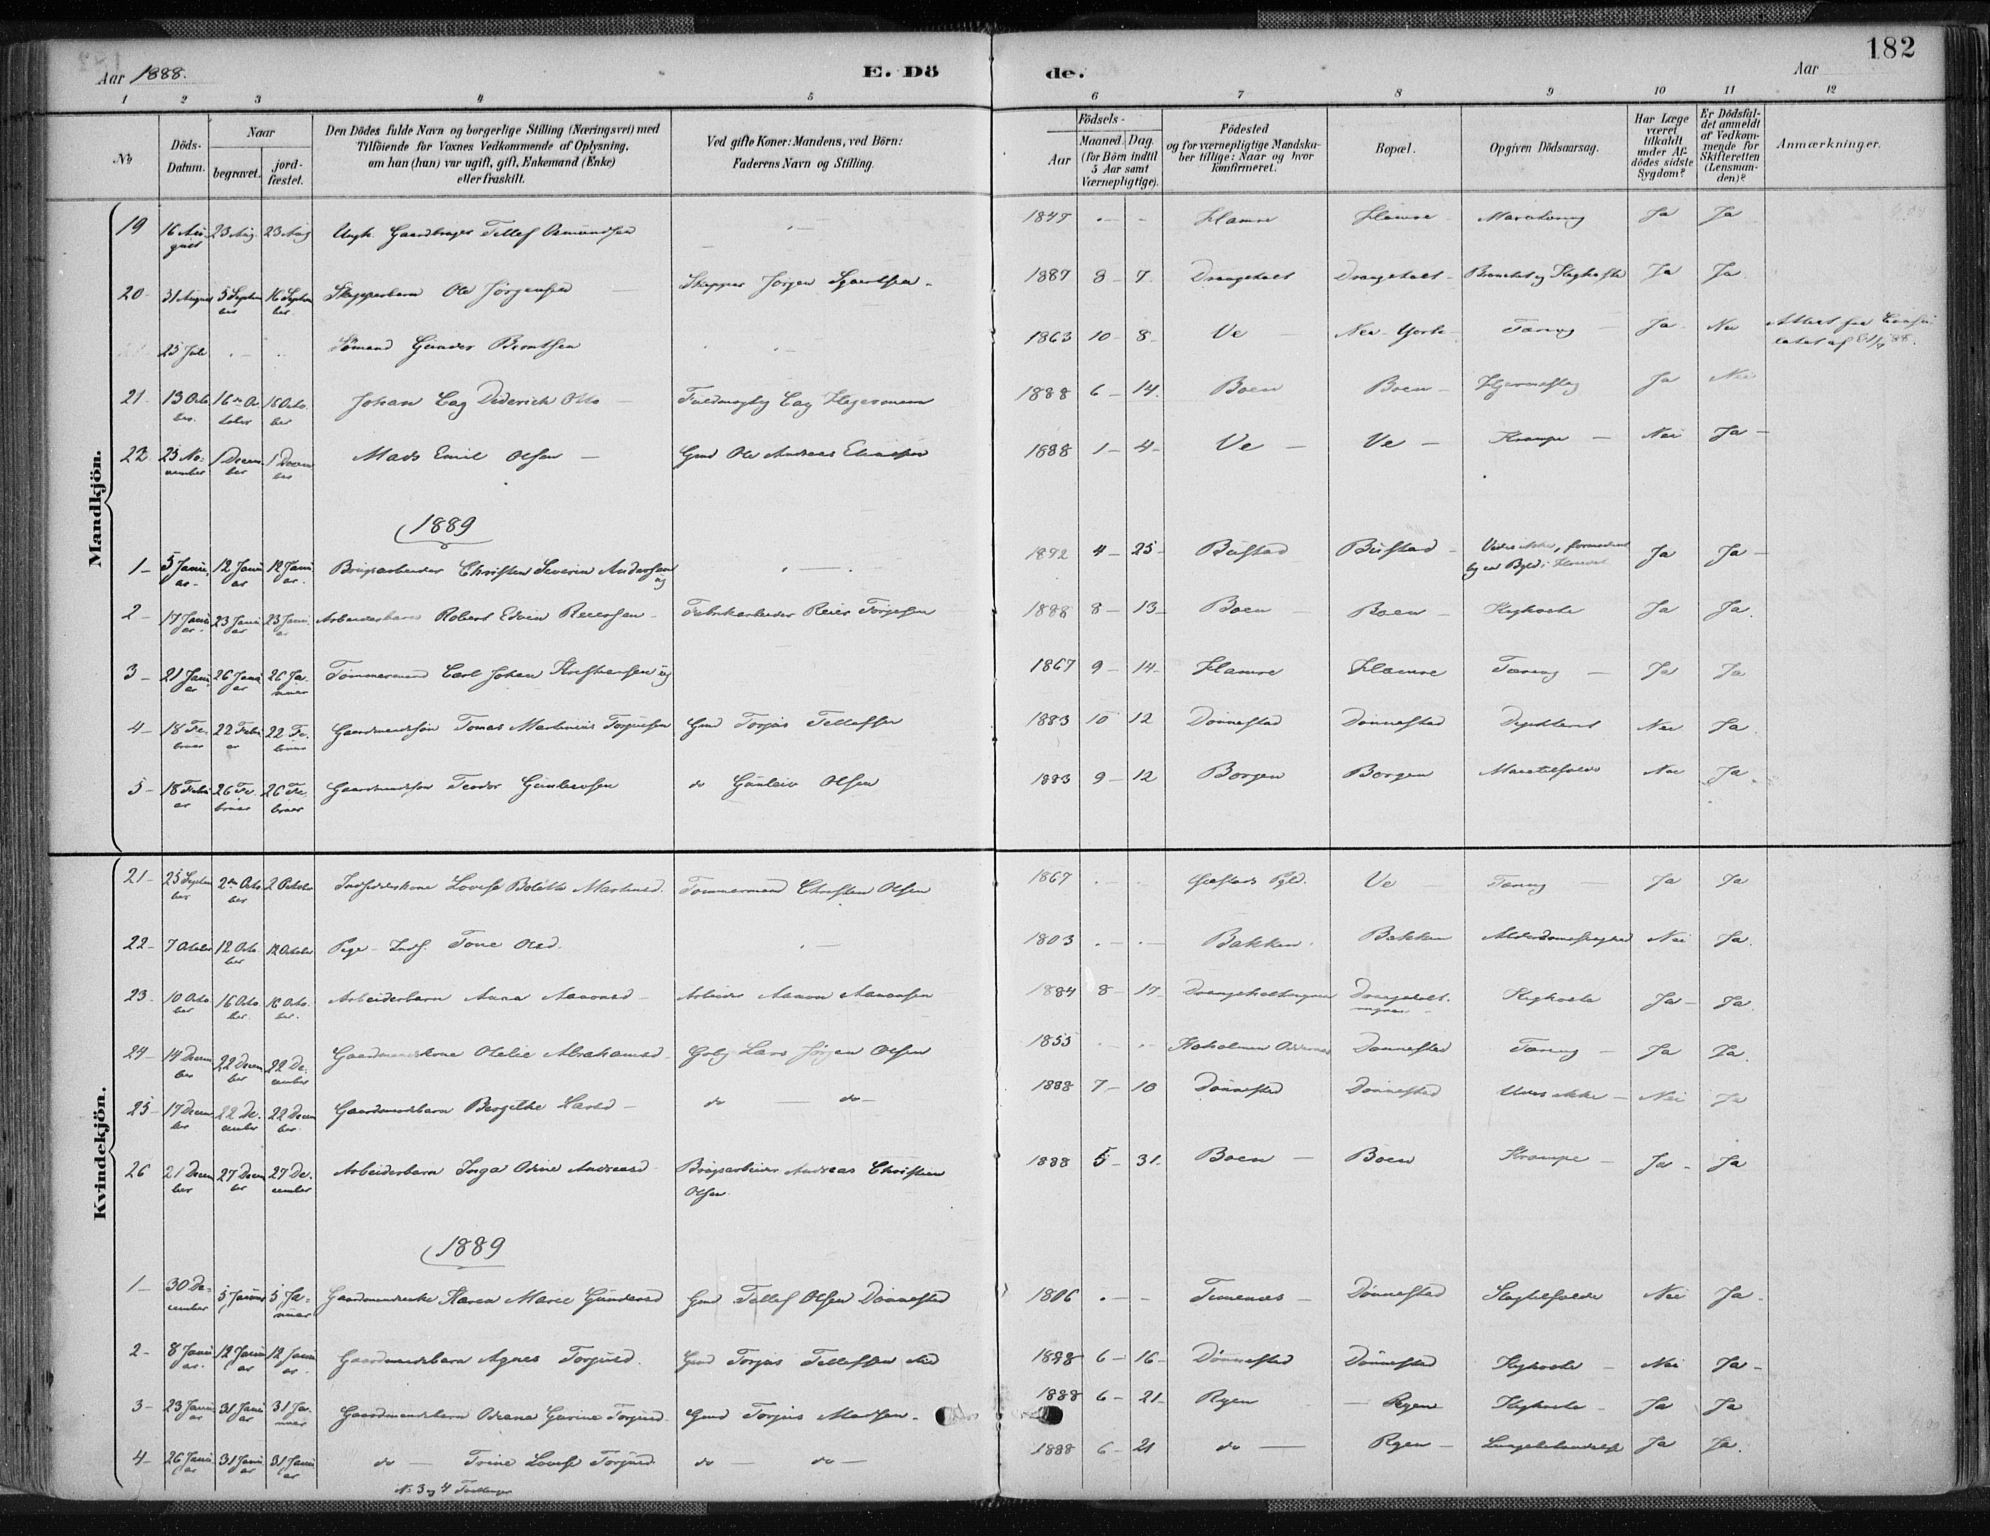 182
Aar 1888.
E. Dö
de.
Aar
1 2 3 4 5 6 7 8 9 10 11 12
No
Döds-Datum.
Naar
begravet.
jord-fæstet.
Den Dödes fulde Navn og borgerlige Stilling (Næringsvei) med
Tilföiende for Voxnes Vedkommende af Oplysning,
om han (hun) var ugift, gift, Enkemand (Enke)
eller fraskilt.
Ved gifte Koner: Mandens, ved Börn:
Faderens Navn og Stilling.
Födsels-
Aar
Maaned. Dag.
(for Börn indtil
5 Aar samt
Værnepligtige).
Födested
og for værnepligtige Mandska-
ber tillige: Naar og hvor
konfirmeret.
Bopæl.
Opgiven Dödsaarsag.
Har Læge
været
tilkaldt
under Af-
dödes sidste
Sygdom?
Er Dödsfal-
det anmeldt
af Vedkom-
mende for
Skifteretten
(Lensman-
den)?
Anmærkninger.
Mandkjön.
19 16 August 23 Aug. 23 Aug Ungk. Gaardbruger Tellef Osmundsen - 1847 . - - Hamre Hamre Ja Ja
20 31 August 5 September 16 September Skipperbarn Ole Jörgensen Skipper Jörgen 1887 8 - 7 Drangeholt Drangeholt Ja Ja
25 Juli Sömand Gunder Berntsen 1863 10 - 8 Ve New-York Tæring Ja Nei Attest fra Consulatet af
21 13 October 16de October 16 October Johan Cay Diderich Otto Fuldmægtig Cay Hegermann 1888 6 - 14 Boen Boen Ja Nei
22 23 November 1 December 1 December Mads Emil Olsen Gmd Ole Andreas 1888 1 - 4 Ve Ve Krampe Nei Ja
1889
1 5 Januar 12 Januar 12 Januar Brugsarbeider Christen Severin Andersen ug 4 - 25 Bustad Bustad Vides ikke, Ja Ja
2 17 Januar 23 Januar 23 Januar Arbeiderbarn Robert Edvin Reiersen Fabrikarbeider Reier Torgersen 1888 8 - 13 Boen Boen Kighoste Ja Ja
3 21 Januar 26 Januar 26 Januar Tömmermand Carl Johan Kristiansen ug 1867 9 - 14 Hamre Hamre Tæring Ja Ja
4 18 Februar 22 Februar 22 Februar Gaardmandssön Tomas Martinius Torjussen Gmd Torjus Tellefsen 1883 10 12 Dönnestad Dönnestad Nei Ja
5 18 Februar 26 Februar 26 Februar Gaardmandssön Teodor Gunleivsen do Gunleiv Olsen 1883 9 - 12 Borgen Borgen Nei Ja
Kvindekjön.
21 25 September 2den October 2 October Indsidderskone Lovise Bolette Martinsd. Tömmermand Christen Olsen 1867 Ve Tæring Ja Ja
22 7 October 12 October 12 October Pige Inds. Tone Olsd. 1803 Bakken Bakken Alderdomssvaghed Nei Ja
23 10 October 16 October 16 October Arbeiderbarn Anna Aanonsd Arbeider Aanon Aanonsen 1884 8 - 17 Kighoste Ja Ja
24 14 December 22 December 22 December Gaardmandskone Otelie Abrahamsd. Gbr Lars Jörgen Olsen 1855 Dönnestad Tæring Ja Ja
25 17 December 22 December 22 December Gaardmandsbarn Bergithe Larsd do do 1888 7 - 10 Dönnestad Dönnestad Vides ikke Nei Ja
26 21 December 27 December 27 December Arbeiderbarn Inga Osine Andreasd Brugsarbeider Andreas Christian
Olsen 1888 5 - 31 Boen Boen Krampe Ja Ja
1889
1 30 December 5 Januar 5 Januar Gaardmandsenke Karen Marie Gundersd Gmd Tellef Olsen Dönnestad 1806 Timenes Dönnestad Slagtilfælde Nei Ja
2 8 Januar 12 Januar 12 Januar Gaardmandsbarn Agnes Torjusd. Gmd Torjus Tellefsen 1888 6 - 16 Dönnestad Dönnestad Kighoste Nei Ja
3 23 Januar 31 Januar 31 Januar Gaardmandsbarn Oseana Gurine Torjusd. Gmd Torjus Madsen 1888 6 - 21 Ryen Ryen Kighoste Ja Ja
4 26 Januar 31 Januar 31 Januar do Trine Lovise Torjusd do do 1888 6 - 21 do Ryen Ja Ja
No 3 og 4 Tvillinger